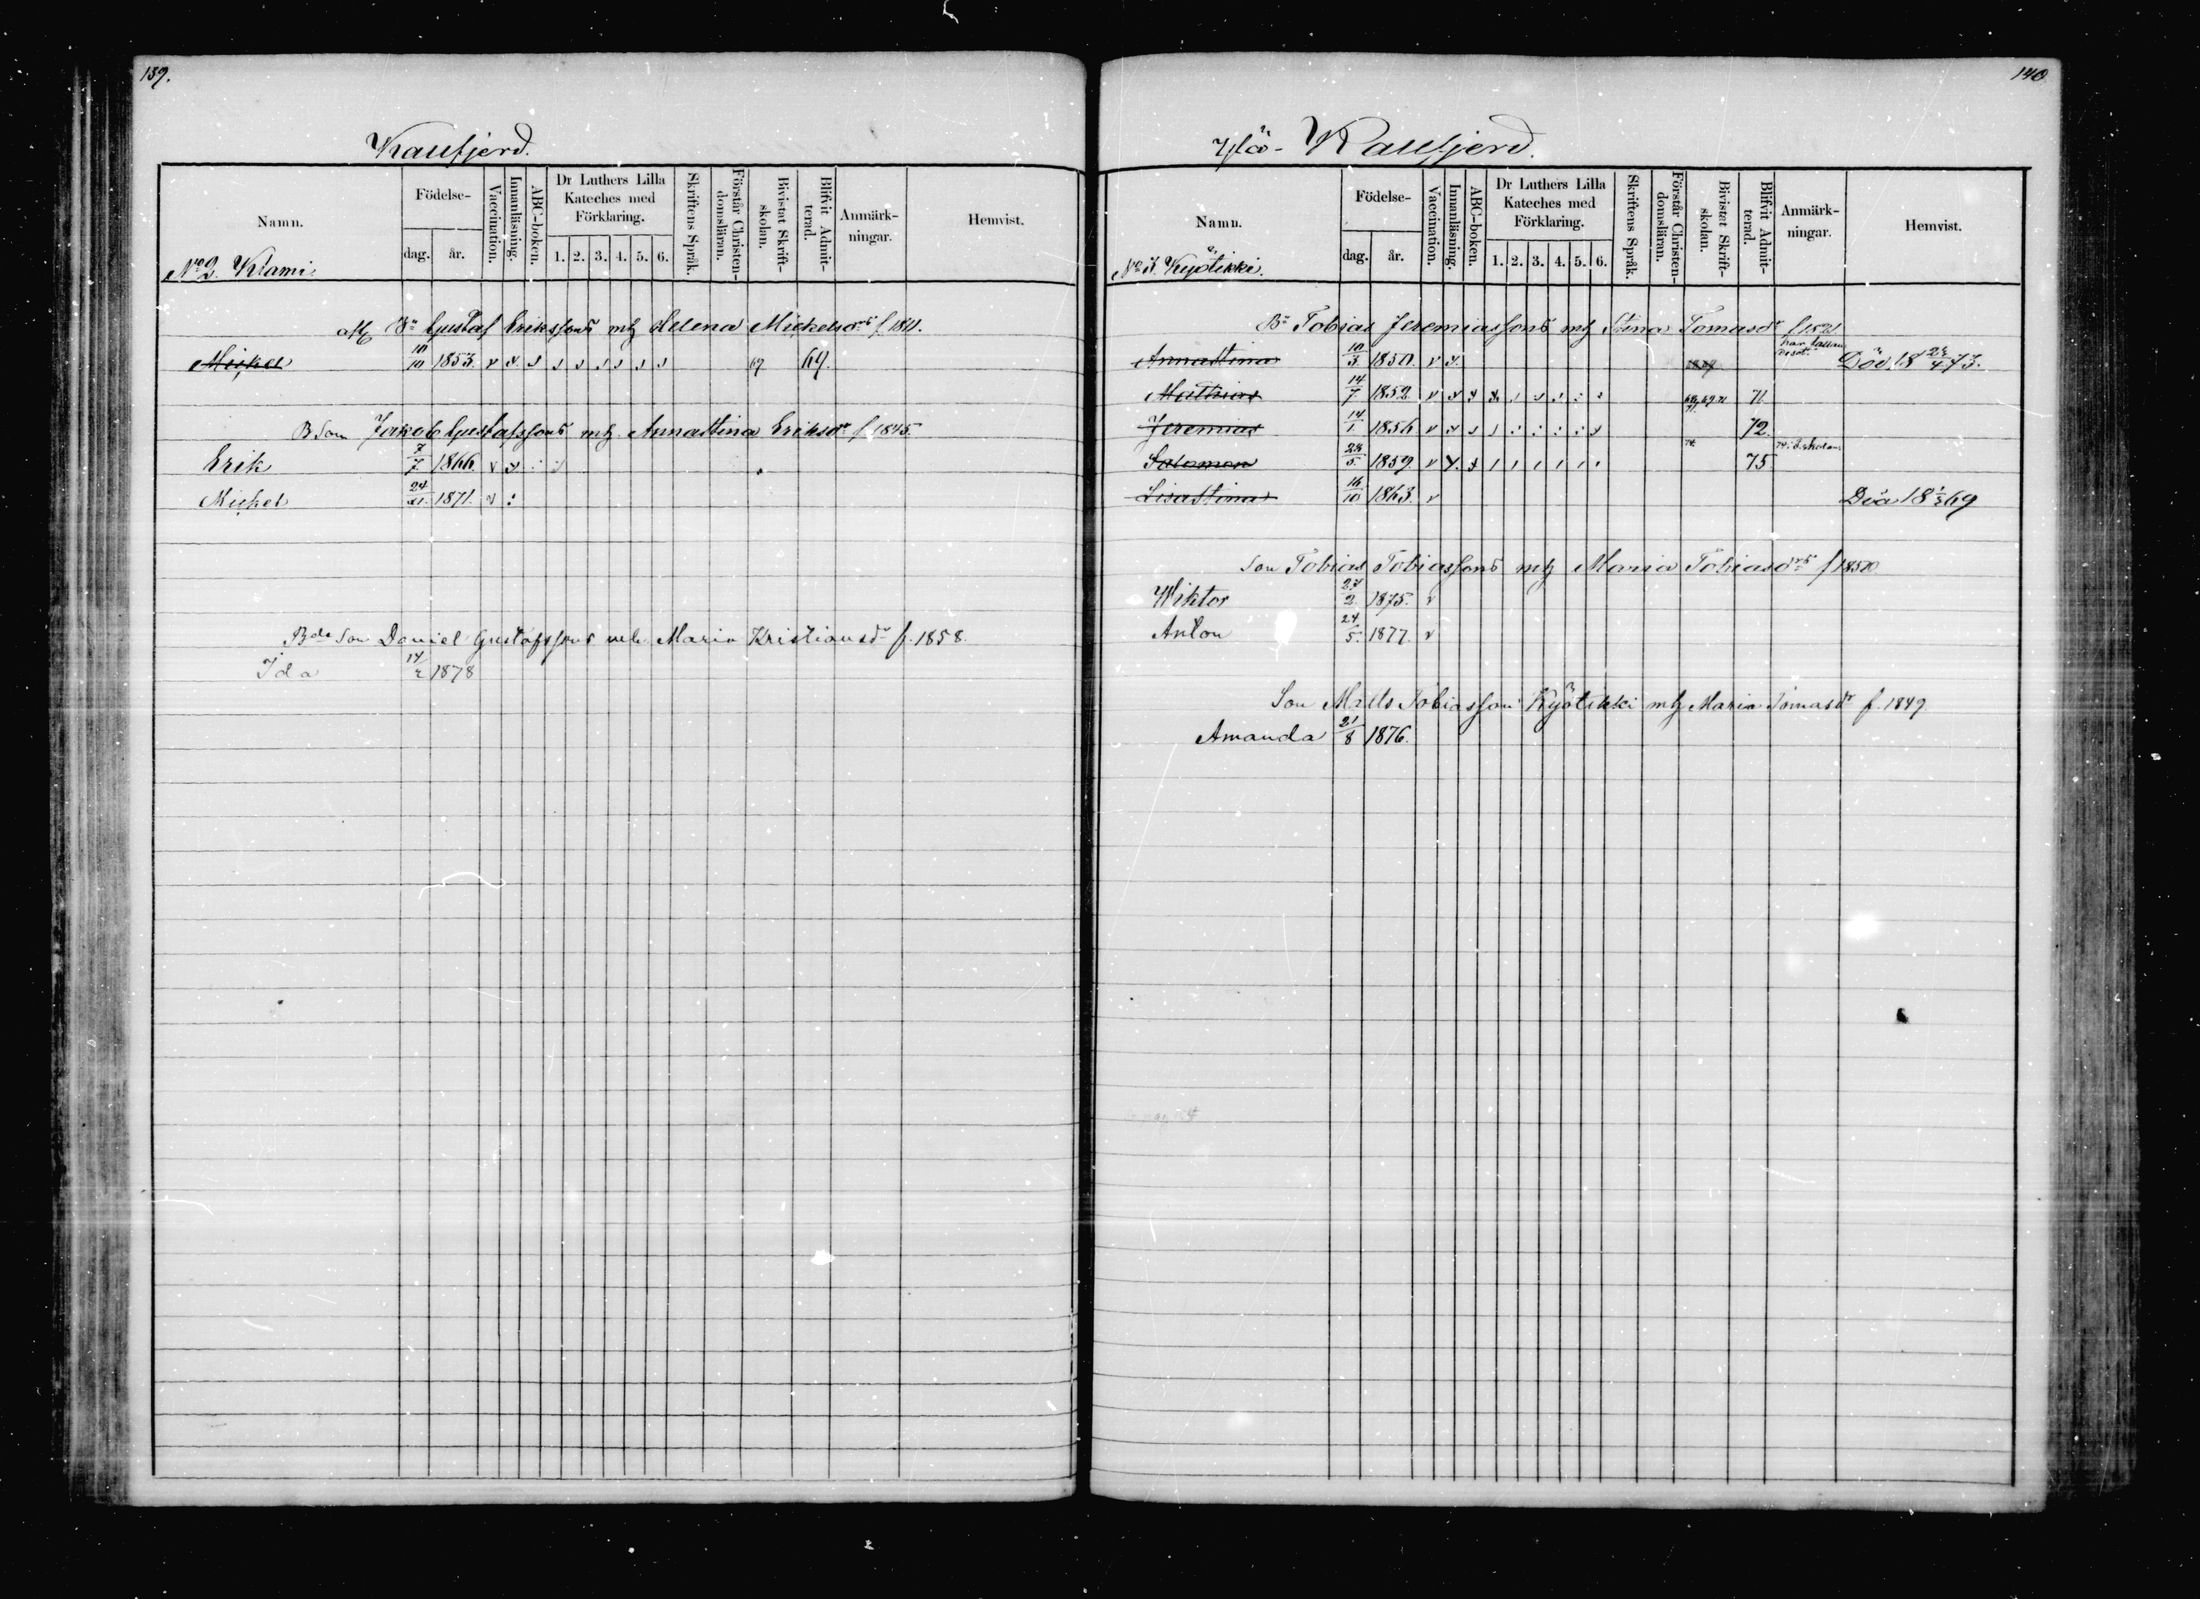 139.
Kaufjerd.
Namn. Födelse- dag. år. Vaccination. Innanläsning. ABC-boken. Dr Luthers Lilla Kateches med Förklaring. 1. 2. 3. 4. 5. 6. Skriftens Språk. Förstår Christen-domsläran. Bivistat Skrift-skolan. Blifvit Admit-terad. Anmärk-ningar. Hemvist.
No 2. Klami
Bn Gustaf Erikssons mh Helena Mickelsdrs f. 1811.
Mickel 10/10 1853. v 69.
B Son Jakob Gustafssons mh Annastina Eriksdr f 1845.
Erik 7/7 1866. v
Mickel 24/11. 1871. v
Bde Son Daniel Gustafssons mh Maria Kristiansdr f. 1858.
Ida 1878
140
Ylö- Kaufjerd.
Namn. Födelse- dag. år. Vaccination. Innanläsning. ABC-boken. Dr Luthers Lilla Kateches med Förklaring. 1. 2. 3. 4. 5. 6. Skriftens Språk. Förstår Christen-domsläran. Bivistat Skrift-skolan. Blifvit Admit-terad. Anmärk-ningar. Hemvist.
Kyötikki.
Bn Tobias Jeremiassons mh Stina Tomasdr f 1821.
Annastina 10/3 1850. v Död 18 73.
Mathias 14/7 1852 v 71.
Jeremias 14/1 1856 v 72.
Salomon 1859. v 74 75
Lisastina 16/10 1863. v Död 18 69
Son Tobias Tobiassons mh Maria Tobiasdrs f 1850
Wiktor 27/2 1875. v
Anton 24/5. 1877. v
Son Matts Tobiasson Kyötikki mh Maria Tomasdr f. 1849
Amanda 21/8 1876.